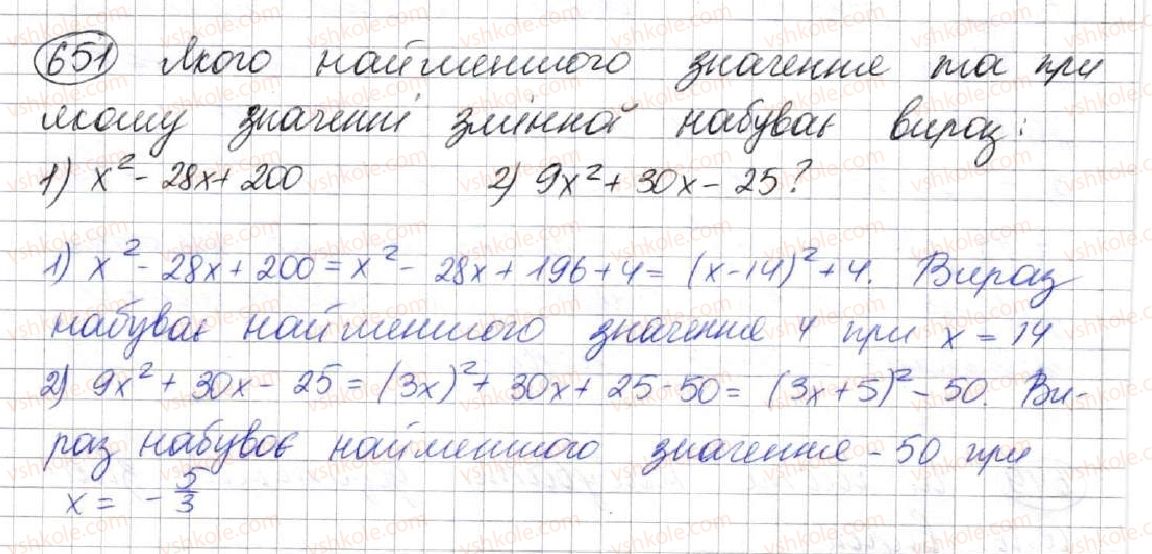 651 Якого найменшого значення та при
якому значенні змінної набуває вираз:
1) x² - 28x + 200 2) 9x² + 30x - 25?
1) x² - 28x + 200 = x² - 28x + 196 + 4 = (x - 14)² + 4. Вираз
набуває найменшого значення 4 при x = 14
2) 9x² + 30x - 25 = (3x)² + 30x + 25 - 50 = (3x + 5)² - 50. Ви-
раз набуває найменшого значення - 50 при
x = - 5/3